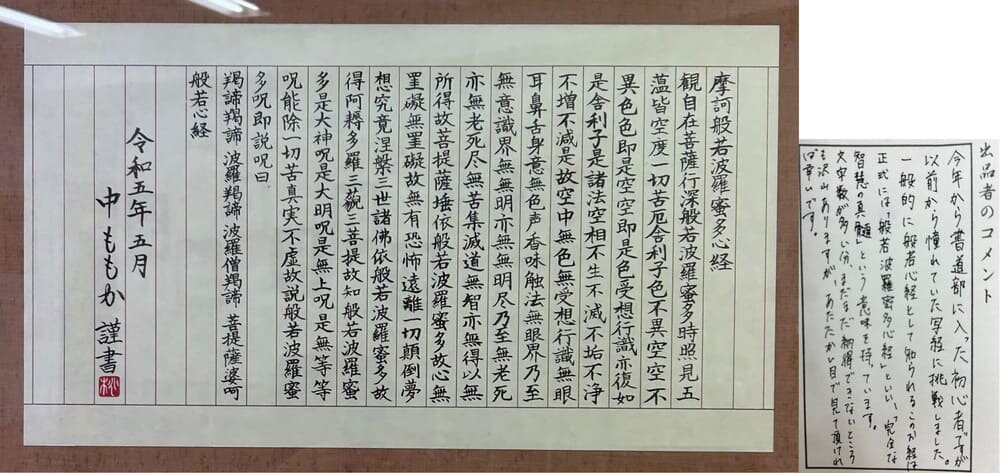 摩訶般若波羅蜜多心経
観自在菩薩行深般若波羅蜜多時照見五
蘊皆空度一切苦厄舎利子色不異空空不
異色色即是空空即是色受想行識亦復如
是舎利子是諸法空相不生不滅不垢不浄
不増不減是故空中無色無受想行識無眼
耳鼻舌身意無色声香味触法無眼界乃至
無意識界無無明亦無無明尽乃至無老死
亦無老死尽無苦集滅道無智亦無得以無
所得故菩提薩埵依般若波羅蜜多故心無
罣礙無罣礙故無有恐怖遠離一切顛倒夢
想究竟涅槃三世諸佛依般若波羅蜜多故
得阿耨多羅三藐三菩提故知般若波羅蜜
多是大神呪是大明呪是無上呪是無等等
呪能除一切苦真実不虚故説般若波羅蜜
多呪即説呪曰
羯諦羯諦 波羅羯諦 波羅僧羯諦 菩提薩婆呵
般若心経
令和五年 五月
中ももか 謹書
桃
出品者のコメント
今年から書道部に入った初心者ですが
以前から憧れてた写経に挑戦しました。
一般的に般若心経として知られるこのお経は
正式には「般若波羅蜜多心経」といい、「完全な
智慧の真髄」という意味を持っています。
文字数が多い分、まだまだ納得できないところ
も沢山ありますが、あたたかい目で見て頂けれ
ば幸いです。